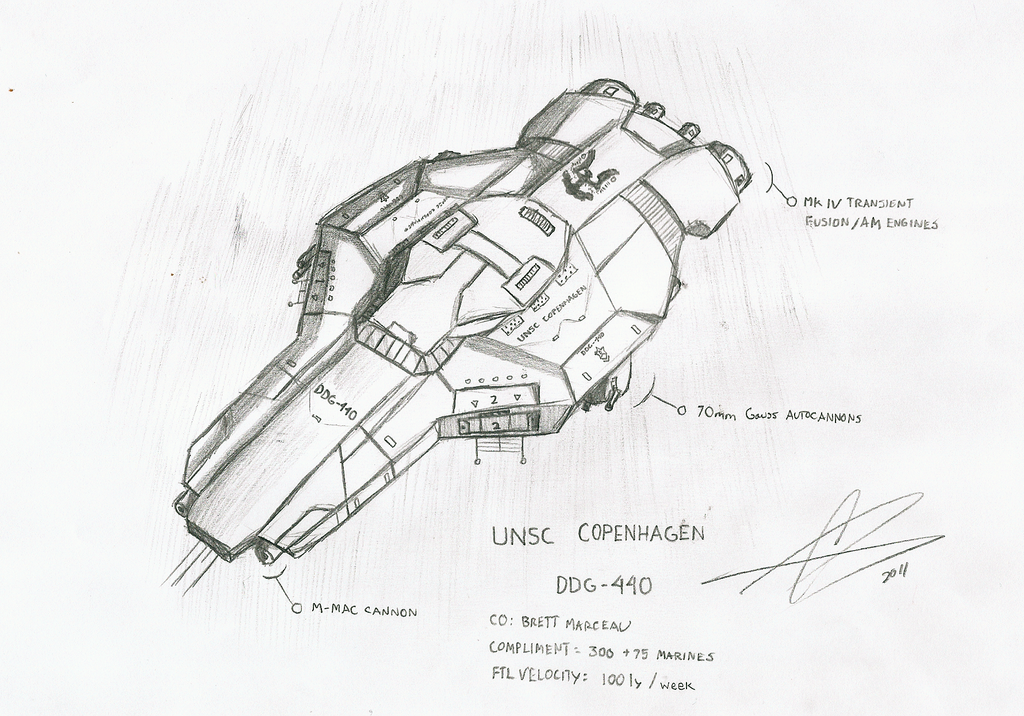 MK IV TRANSIENT
FUSION/AM ENGINES
UNSC COPENHAGEN
DDG-440
DDG-440
2
2
70mm GAUSS AUTOCANNONS
M-MAC CANNON
UNSC COPENHAGEN
DDG-440
CO: BRETT MARCEAU
COMPLIMENT = 300 + 75 MARINES
FTL VELOCITY: 100 ly / week
2011